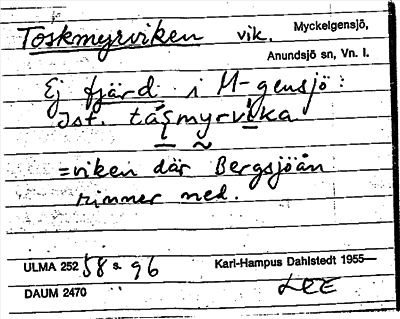 Toskmyrviken vik. Myckelgensjö,
Anundsjö sn, Vn. l.
Ej fjärd i M-gensjö:
Ist. táʂmyrvika
=viken där Bergsjöån
rinner ned.
ULMA 252 58 s. 96 Karl-Hampus Dahlstedt 1955—
DAUM 2470